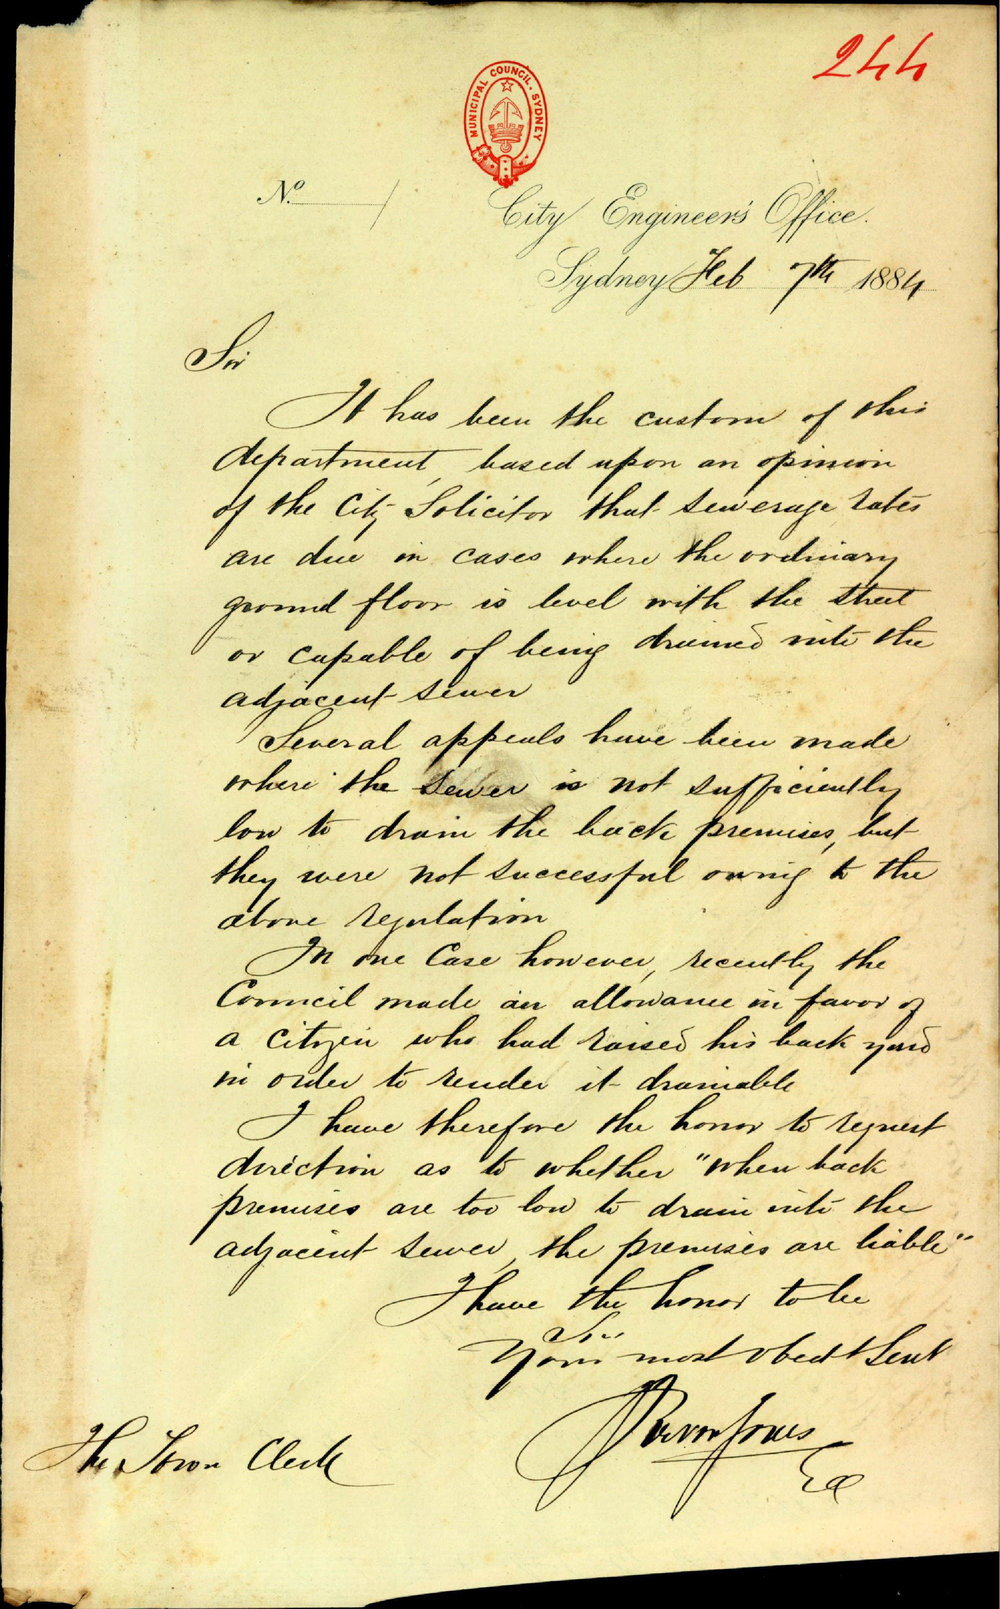 244
MUNICIPAL COUNCIL. SYDNEY
No. /
City Engineer's Office.
Sydney Feb 7th 1884
Sir
It has been the custom of this
department, based upon an opinion
of the City Solicitor that sewerage rates
are due in cases where the ordinary
ground floor is level with the street
or capable of being drained into the
adjacent sewer
Several appeals have been made
where the sewer is not sufficiently
low to drain the back premises, but
they were not successful owing to the
above regulation
In one case however, recently the
Council made an allowance in favor of
a citizen who had raised his back yard
in order to render it drainable
I have therefore the honor to request
direction as to whether "when back
premises are too low to drain into the
adjacent sewer, the premises are liable"
I have the honor to be
Sir
Your most obedt Sevt
Jones
The Town Clerk